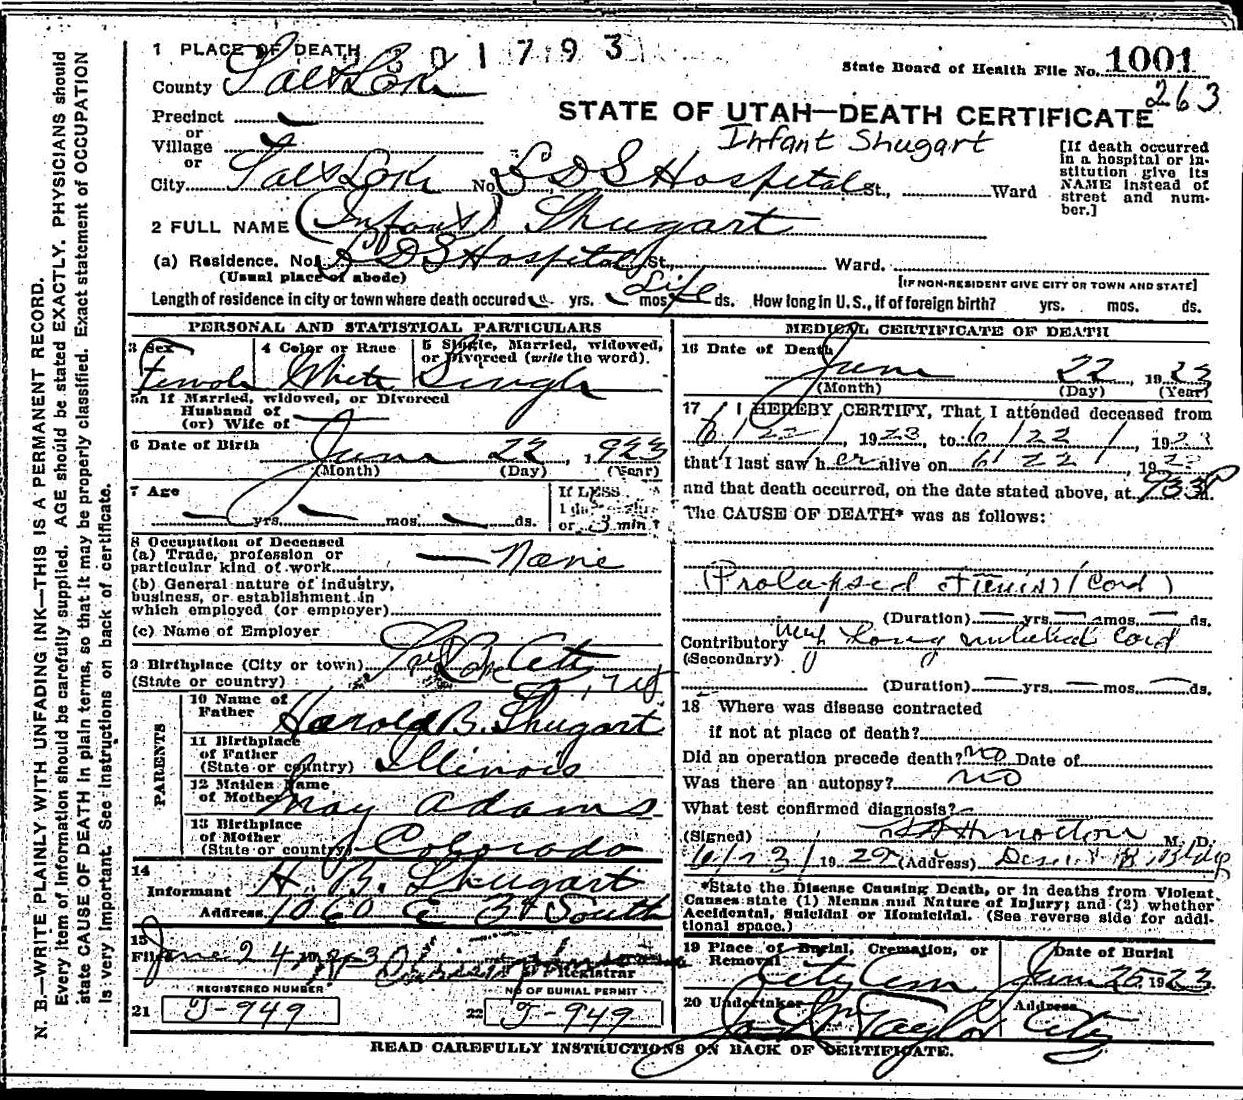 N. B.—WRITE PLAINLY WITH UNFADING INK—THIS IS A PERMANENT RECORD.
Every item of information should be carefully supplied. AGE should be stated EXACTLY. PHYSICIANS should
state CAUSE OF DEATH in plain terms, so that it may be properly classified. Exact statement of OCCUPATION
is very important. See instructions on back of certificate.
1 PLACE OF DEATH 1793
State Board of Health File No. 1001
263
County Salt Lake
STATE OF UTAH—DEATH CERTIFICATE
Infant Shugart
Precinct
or
Village
or
City Salt Lake No. L D S Hospital St., Ward
[If death occurred
in a hospital or in-
stitution give its
NAME instead of
street and num-
ber.]
2 FULL NAME (Infant) Shugart
(a) Residence. No. L D S Hospital St., Ward.
(Usual place of abode) [IF NON-RESIDENT GIVE CITY OR TOWN AND STATE]
Length of residence in city or town where death occured yrs. mos. Life ds. How long in U.S., if of foreign birth? yrs. mos. ds.
PERSONAL AND STATISTICAL PARTICULARS
3 Sex 4 Color or Race 5 Single, Married, widowed,
or Divorced (write the word).
Female White Single
5a If Married, widowed, or Divorced
Husband of
(or) Wife of
6 Date of Birth June 22, 1923
(Month) (Day) (Year)
7 Age If LESS
yrs. mos. ds. or 3 min?
8 Occupation of Deceased
(a) Trade, profession or
particular kind of work None
(b) General nature of industry,
business, or establishment in
which employed (or employer)
(c) Name of Employer
9 Birthplace (City or town) City
(State or country)
PARENTS
10 Name of
Father Harold B. Shugart
11 Birthplace
of Father
(State or country) Illinois
12 Maiden Name
of Mother May Adams
13 Birthplace
of Mother
(State or country) Colorado
14
Informant H. B. Shugart
Address 1060 E 3d South
15
Filed June 24 1923
Registrar
REGISTERED NUMBER NO OF BURIAL PERMIT
21 J-949 22 J-949
MEDICAL CERTIFICATE OF DEATH
16 Date of Death
June 22, 1923
(Month) (Day) (Year)
17 I HEREBY CERTIFY, That I attended deceased from
6/22/, 1923, to 6/22/, 1923
that I last saw her alive on 6/22, 1923
and that death occurred, on the date stated above, at 933P
The CAUSE OF DEATH* was as follows:
(Prolapsed (Cord)
(Duration) yrs. mos. ds.
Contributory long cord
(Secondary)
(Duration) yrs. mos. ds.
18 Where was disease contracted
if not at place of death?
Did an operation precede death? no Date of
Was there an autopsy? no
What test confirmed diagnosis?
(Signed) M. D.
6/23/1923 (Address) Bldg
*State the Disease Causing Death, or in deaths from Violent
Causes state (1) Means and Nature of Injury; and (2) whether
Accidental, Suicidal or Homicidal. (See reverse side for addi-
tional space.)
19 Place of Burial, Cremation, or Date of Burial
Removal City Cem June 25 1923
20 Undertaker Address
Taylor City
READ CAREFULLY INSTRUCTIONS ON BACK OF CERTIFICATE.